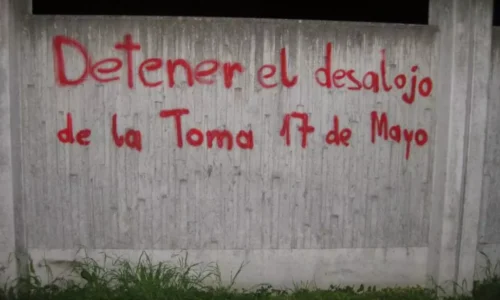 Detener el desalojo
de la Toma 17 de Mayo